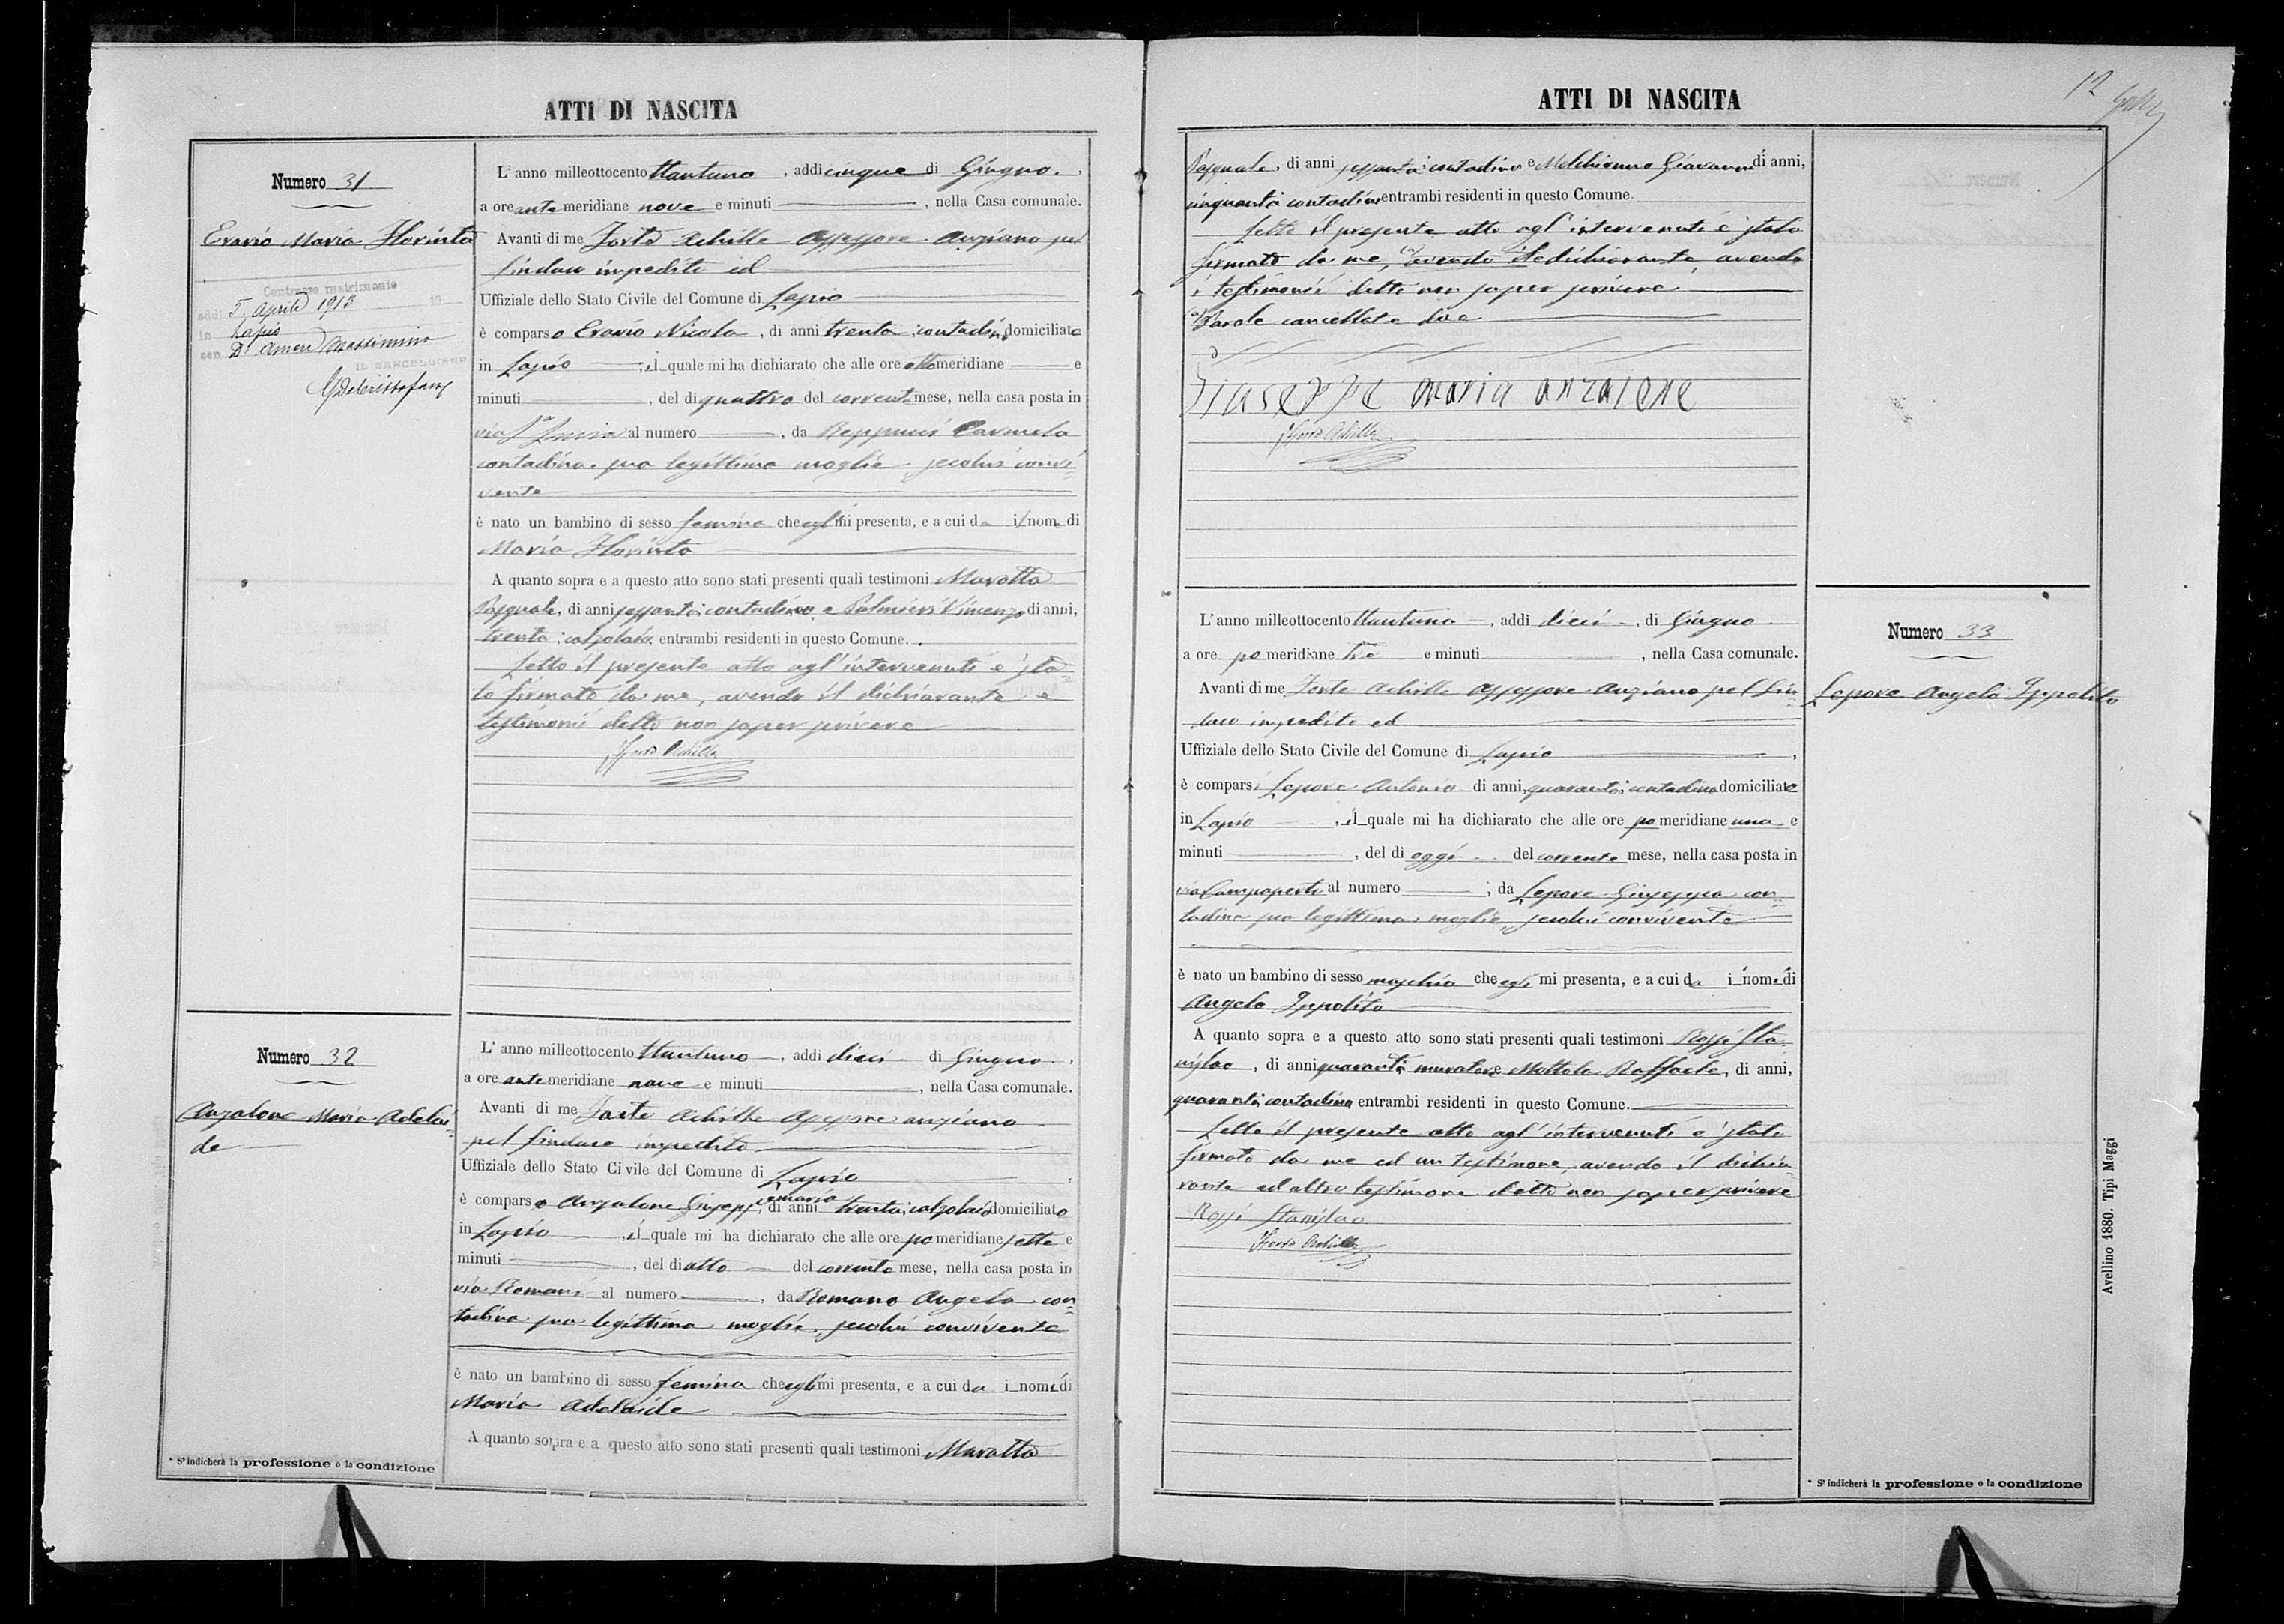 ATTI DI NASCITA
Numero 31
Erario Maria Florinta
Contrasse matrimonio
addì 5 Aprile 1913
in Lapio
con D'Amore Massimino
IL CANCELLIERE
L'anno milleottocento ttantuno, addi cinque di Giugno,
a ore ante meridiane nove e minuti, nella Casa comunale.
Avanti di me Forte Achille Assessore Anziano pel
Sindaco impedito ed
Uffiziale dello Stato Civile del Comune di Lapio
è comparso Erario Nicola, di anni trenta, contadino domiciliato
in Lapio, il quale mi ha dichiarato che alle ore otto meridiane e
minuti, del di quattro del corrente mese, nella casa posta in
via al numero, da Carmela
contadina sua legittima moglie, secolui convi-
vente
è nato un bambino di sesso femina che egli mi presenta, e a cui da i nome di
Maria Florinta
A quanto sopra e a questo atto sono stati presenti quali testimoni Marotta
Pasquale, di anni sessanta, contadino, e Palmieri Vincenzo di anni,
trenta, calzolaio, entrambi residenti in questo Comune.
Letto il presente atto agl'intervenuti è sta-
to firmato da me, avendo il dichiarante e
testimonii detto non saper scrivere
Forte Achille
Numero 32
Anzalone Maria Adelai-
de
L'anno milleottocento ttantuno, addi dieci di Giugno,
a ore ante meridiane nove e minuti, nella Casa comunale.
Avanti di me Forte Achille Assessore anziano
pel Sindaco impedito
Uffiziale dello Stato Civile del Comune di Lapio,
è comparso Anzalone Giuseppe maria, di anni trenta, calzolaio domiciliato
in Lapio, il quale mi ha dichiarato che alle ore po meridiane sette e
minuti, del di otto del corrente mese, nella casa posta in
via Romani al numero, da Romano Angela con-
tadina sua legittima moglie, secolui convivente
è nato un bambino di sesso femina che egli mi presenta, e a cui da i nome di
Maria Adelaide
A quanto sopra e a questo atto sono stati presenti quali testimoni Marotta
* S'indicherà la professione o la condizione
ATTI DI NASCITA
12
Pasquale, di anni sessanta, contadino e Melchionna Giovanni di anni,
cinquanta contadino entrambi residenti in questo Comune.
Letto il presente atto agl'intervenuti è stato
firmato da me, (a) avendo il dichiarante, avendo
i testimonii detto non saper scrivere
(a) Parole cancellate due
Giuseppe maria anzalone
Forte Achille
L'anno milleottocento ttantuno, addi dieci, di Giugno
a ore po meridiane tre e minuti, nella Casa comunale.
Avanti di me Forte Achille Assessore Anziano pel Sin-
daco impedito ed
Uffiziale dello Stato Civile del Comune di Lapio,
è comparso Lepore Antonio di anni, quaranta, contadino domiciliato
in Lapio, il quale mi ha dichiarato che alle ore po meridiane una e
minuti, del di oggi del corrente mese, nella casa posta in
via al numero, da Lepore Giuseppa con-
tadina sua legittima moglie, secolui convivente
è nato un bambino di sesso maschio che egli mi presenta, e a cui da i nome di
Angelo Ippolito
A quanto sopra e a questo atto sono stati presenti quali testimoni Rossi Sta-
nislao, di anni quaranta, muratore e Mottola Raffaele, di anni,
quaranta, contadino entrambi residenti in questo Comune.
Letto il presente atto agl'intervenuti è stato
firmato da me ed un testimone, avendo il dichia-
rante ed altro testimone detto non saper scrivere
Rossi Stanislao
Forte Achille
Numero 33
Lepore Angelo Ippolito
Avellino 1880. Tipi Maggi
* S'indicherà la professione o la condizione